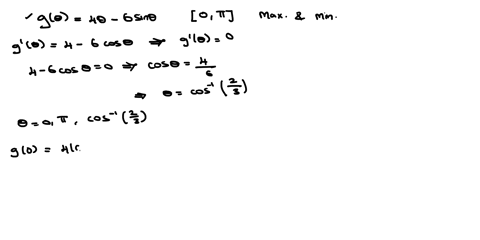 ✓ g(θ) = 4θ - 6 sinθ [0, π] Max. & Min.
g'(θ) = 4 - 6 cosθ ⇒ g'(θ) = 0
4 - 6 cosθ = 0 ⇒ cosθ = 4/6
⇒ θ = cos⁻¹(2/3)
θ = 0, π, cos⁻¹(2/3)
g(0) = 4(